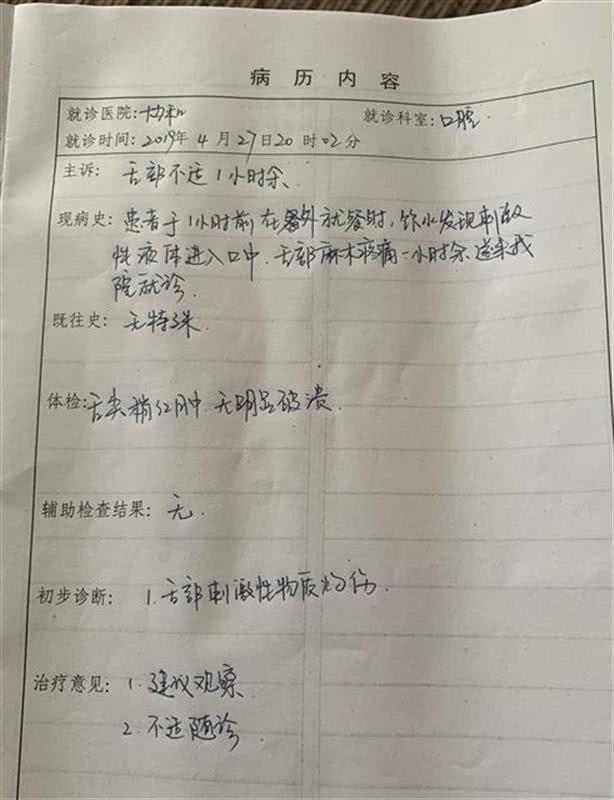 病历内容
就诊医院:协和 就诊科室:口腔.
就诊时间:2019年4月27日20时02分
主诉: 舌部不适1小时余.
现病史: 患者于1小时前在外就餐时,饮水发现刺激
性液体进入口中.舌部麻木疼痛一小时余.遂来我
院就诊.
既往史: 无特殊.
体检: 舌尖稍红肿.无明显破溃.
辅助检查结果: 无.
初步诊断: 1.舌部刺激性物质灼伤.
治疗意见: 1.建议观察
2.不适随诊.